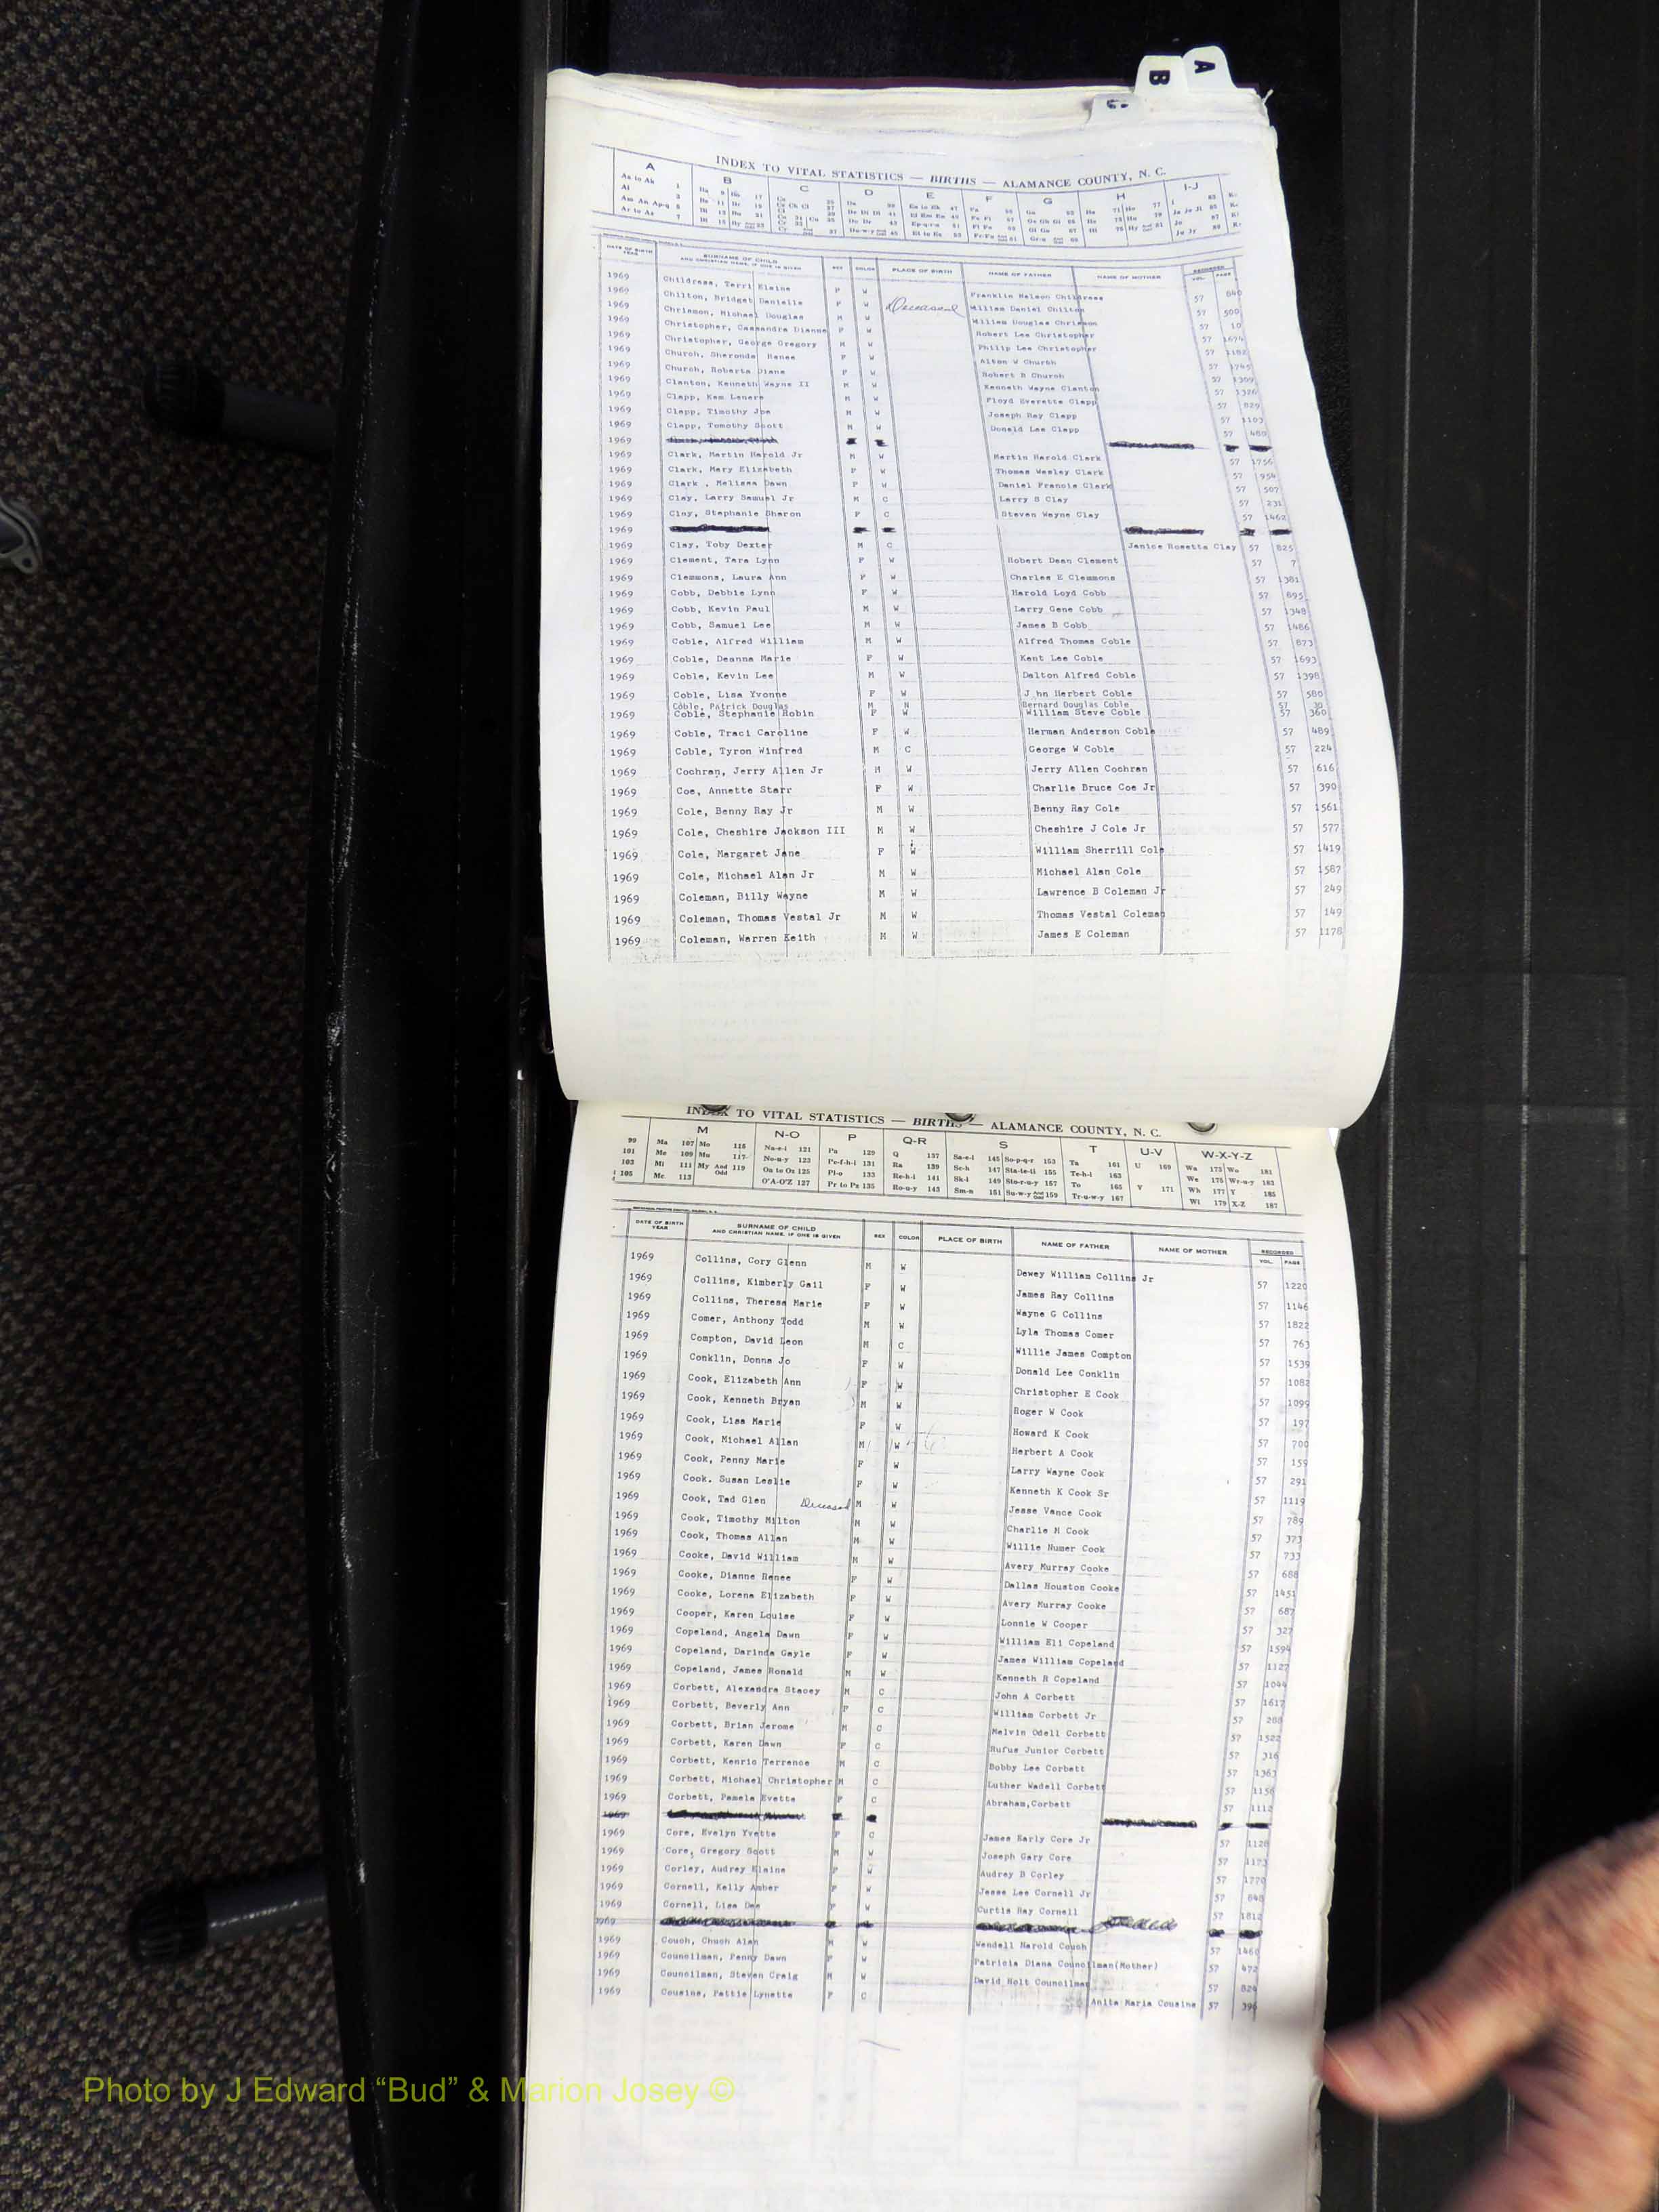 A
B
C
INDEX TO VITAL STATISTICS — BIRTHS — ALAMANCE COUNTY, N. C.
A B C D E F G H I-J
DATE OF BIRTH YEAR SURNAME OF CHILD AND CHRISTIAN NAME, IF ONE IS GIVEN SEX COLOR PLACE OF BIRTH NAME OF FATHER NAME OF MOTHER RECORDED VOL. PAGE
1969 Childress, Terri Elaine F W Franklin Nelson Childress 57 640
1969 Chilton, Bridget Danielle F W Deceased William Daniel Chilton 57 500
1969 Chrismon, Michael Douglas M W William Douglas Chrismon 57 10
1969 Christopher, Cassandra Dianne F W Robert Lee Christopher 57 1694
1969 Christopher, George Gregory M W Philip Lee Christopher 57 1182
1969 Church, Sheronda Renee F W Alton W Church 57 1745
1969 Church, Roberta Diane F W Robert B Church 57 1309
1969 Clanton, Kenneth Wayne II M W Kenneth Wayne Clanton 57 1326
1969 Clapp, Kem Lenere M W Floyd Everette Clapp 57 829
1969 Clapp, Timothy Joe M W Joseph Ray Clapp 57 1103
1969 Clapp, Tomothy Scott M W Donald Lee Clapp 57 480
1969
1969 Clark, Martin Harold Jr M W Martin Harold Clark 57 1756
1969 Clark, Mary Elizabeth F W Thomas Wesley Clark 57 954
1969 Clark , Melissa Dawn F W Daniel Francis Clark 57 507
1969 Clay, Larry Samuel Jr M C Larry S Clay 57 231
1969 Clay, Stephanie Sharon F C Steven Wayne Clay 57 1462
1969
1969 Clay, Toby Dexter M C Janice Rosetta Clay 57 825
1969 Clement, Tara Lynn F W Robert Dean Clement 57 7
1969 Clemmons, Laura Ann F W Charles E Clemmons 57 1381
1969 Cobb, Debbie Lynn F W Harold Loyd Cobb 57 695
1969 Cobb, Kevin Paul M W Larry Gene Cobb 57 1348
1969 Cobb, Samuel Lee M W James B Cobb 57 1486
1969 Coble, Alfred William M W Alfred Thomas Coble 57 873
1969 Coble, Deanna Marie F W Kent Lee Coble 57 1693
1969 Coble, Kevin Lee M W Dalton Alfred Coble 57 1398
1969 Coble, Lisa Yvonne F W J hn Herbert Coble 57 580
Coble, Patrick Douglas M N Bernard Douglas Coble 57 30
1969 Coble, Stephanie Robin F W William Steve Coble 57 360
1969 Coble, Traci Caroline F W Herman Anderson Coble 57 489
1969 Coble, Tyron Winfred M C George W Coble 57 224
1969 Cochran, Jerry Allen Jr M W Jerry Allen Cochran 57 616
1969 Coe, Annette Starr F W Charlie Bruce Coe Jr 57 390
1969 Cole, Benny Ray Jr M W Benny Ray Cole 57 1561
1969 Cole, Cheshire Jackson III M W Cheshire J Cole Jr 57 577
1969 Cole, Margaret Jane F W William Sherrill Cole 57 1419
1969 Cole, Michael Alan Jr M W Michael Alan Cole 57 1587
1969 Coleman, Billy Wayne M W Lawrence B Coleman Jr 57 249
1969 Coleman, Thomas Vestal Jr M W Thomas Vestal Coleman 57 149
1969 Coleman, Warren Keith M W James E Coleman 57 1178
INDEX TO VITAL STATISTICS — BIRTHS — ALAMANCE COUNTY, N. C.
M N-O P Q-R S T U-V W-X-Y-Z
99 Ma 107 Mo 115 Na-e-i 121 Pa 129 Q 137 Sa-e-i 145 So-p-q-r 153 Ta 161 U 169 Wa 173 Wo 181
101 Me 109 Mu 117 No-u-y 123 Pe-f-h-l 131 Ra 139 Sc-h 147 Sta-te-ti 155 Te-h-i 163 We 175 Wr-u-y 183
103 Mi 111 My And Odd 119 On to Oz 125 Pl-o 133 Re-h-i 141 Sk-l 149 Sto-r-u-y 157 To 165 V 171 Wh 177 Y 185
105 Mc 113 O'A-O'Z 127 Pr to Pz 135 Ro-u-y 143 Sm-n 151 Su-w-y And Odd 159 Tr-u-w-y 167 Wi 179 X-Z 187
DATE OF BIRTH YEAR SURNAME OF CHILD AND CHRISTIAN NAME, IF ONE IS GIVEN SEX COLOR PLACE OF BIRTH NAME OF FATHER NAME OF MOTHER RECORDED VOL. PAGE
1969 Collins, Cory Glenn M W Dewey William Collins Jr 57 1220
1969 Collins, Kimberly Gail F W James Ray Collins 57 1146
1969 Collins, Theresa Marie F W Wayne G Collins 57 1822
1969 Comer, Anthony Todd M W Lyla Thomas Comer 57 763
1969 Compton, David Leon M C Willie James Compton 57 1539
1969 Conklin, Donna Jo F W Donald Lee Conklin 57 1082
1969 Cook, Elizabeth Ann F W Christopher E Cook 57 1099
1969 Cook, Kenneth Bryan M W Roger W Cook 57 197
1969 Cook, Lisa Marie F W Howard K Cook 57 700
1969 Cook, Michael Allan M W Herbert A Cook 57 159
1969 Cook, Penny Marie F W Larry Wayne Cook 57 291
1969 Cook. Susan Leslie F W Kenneth K Cook Sr 57 1119
1969 Cook, Tad Glen Deceased M W Jesse Vance Cook 57 789
1969 Cook, Timothy Milton M W Charlie M Cook 57 373
1969 Cook, Thomas Allan M W Willie Numer Cook 57 733
1969 Cooke, David William M W Avery Murray Cooke 57 688
1969 Cooke, Dianne Renee F W Dallas Houston Cooke 57 1451
1969 Cooke, Lorena Elizabeth F W Avery Murray Cooke 57 687
1969 Cooper, Karen Louise F W Lonnie W Cooper 57 327
1969 Copeland, Angela Dawn F W William Eli Copeland 57 1594
1969 Copeland, Darinda Gayle F W James William Copeland 57 1127
1969 Copeland, James Ronald M W Kenneth R Copeland 57 1044
1969 Corbett, Alexandra Stacey M C John A Corbett 57 1617
1969 Corbett, Beverly Ann F C William Corbett Jr 57 288
1969 Corbett, Brian Jerome M C Melvin Odell Corbett 57 1522
1969 Corbett, Karen Dawn F C Rufus Junior Corbett 57 316
1969 Corbett, Kenric Terrence M C Bobby Lee Corbett 57 1363
1969 Corbett, Michael Christopher M C Luther Wadell Corbett 57 1156
1969 Corbett, Pamela Evette F C Abraham,Corbett 57 1112
1969
1969 Core, Evelyn Yvette F C James Early Core Jr 57 1128
1969 Core, Gregory Scott M W Joseph Gary Core 57 1173
1969 Corley, Audrey Elaine F W Audrey B Corley 57 1770
1969 Cornell, Kelly Amber F W Jesse Lee Cornell Jr 57 648
1969 Cornell, Lisa Dee F W Curtis Ray Cornell 57 1812
1969
1969 Couch, Chuch Alan M W Wendell Harold Couch 57 1460
1969 Councilman, Penny Dawn F W Patricia Diana Councilman(Mother) 57 472
1969 Councilman, Steven Craig M W David Holt Councilman 57 824
1969 Cousins, Pattie Lynette F C Anita Maria Cousins 57 396
Photo by J Edward “Bud” & Marion Josey ©